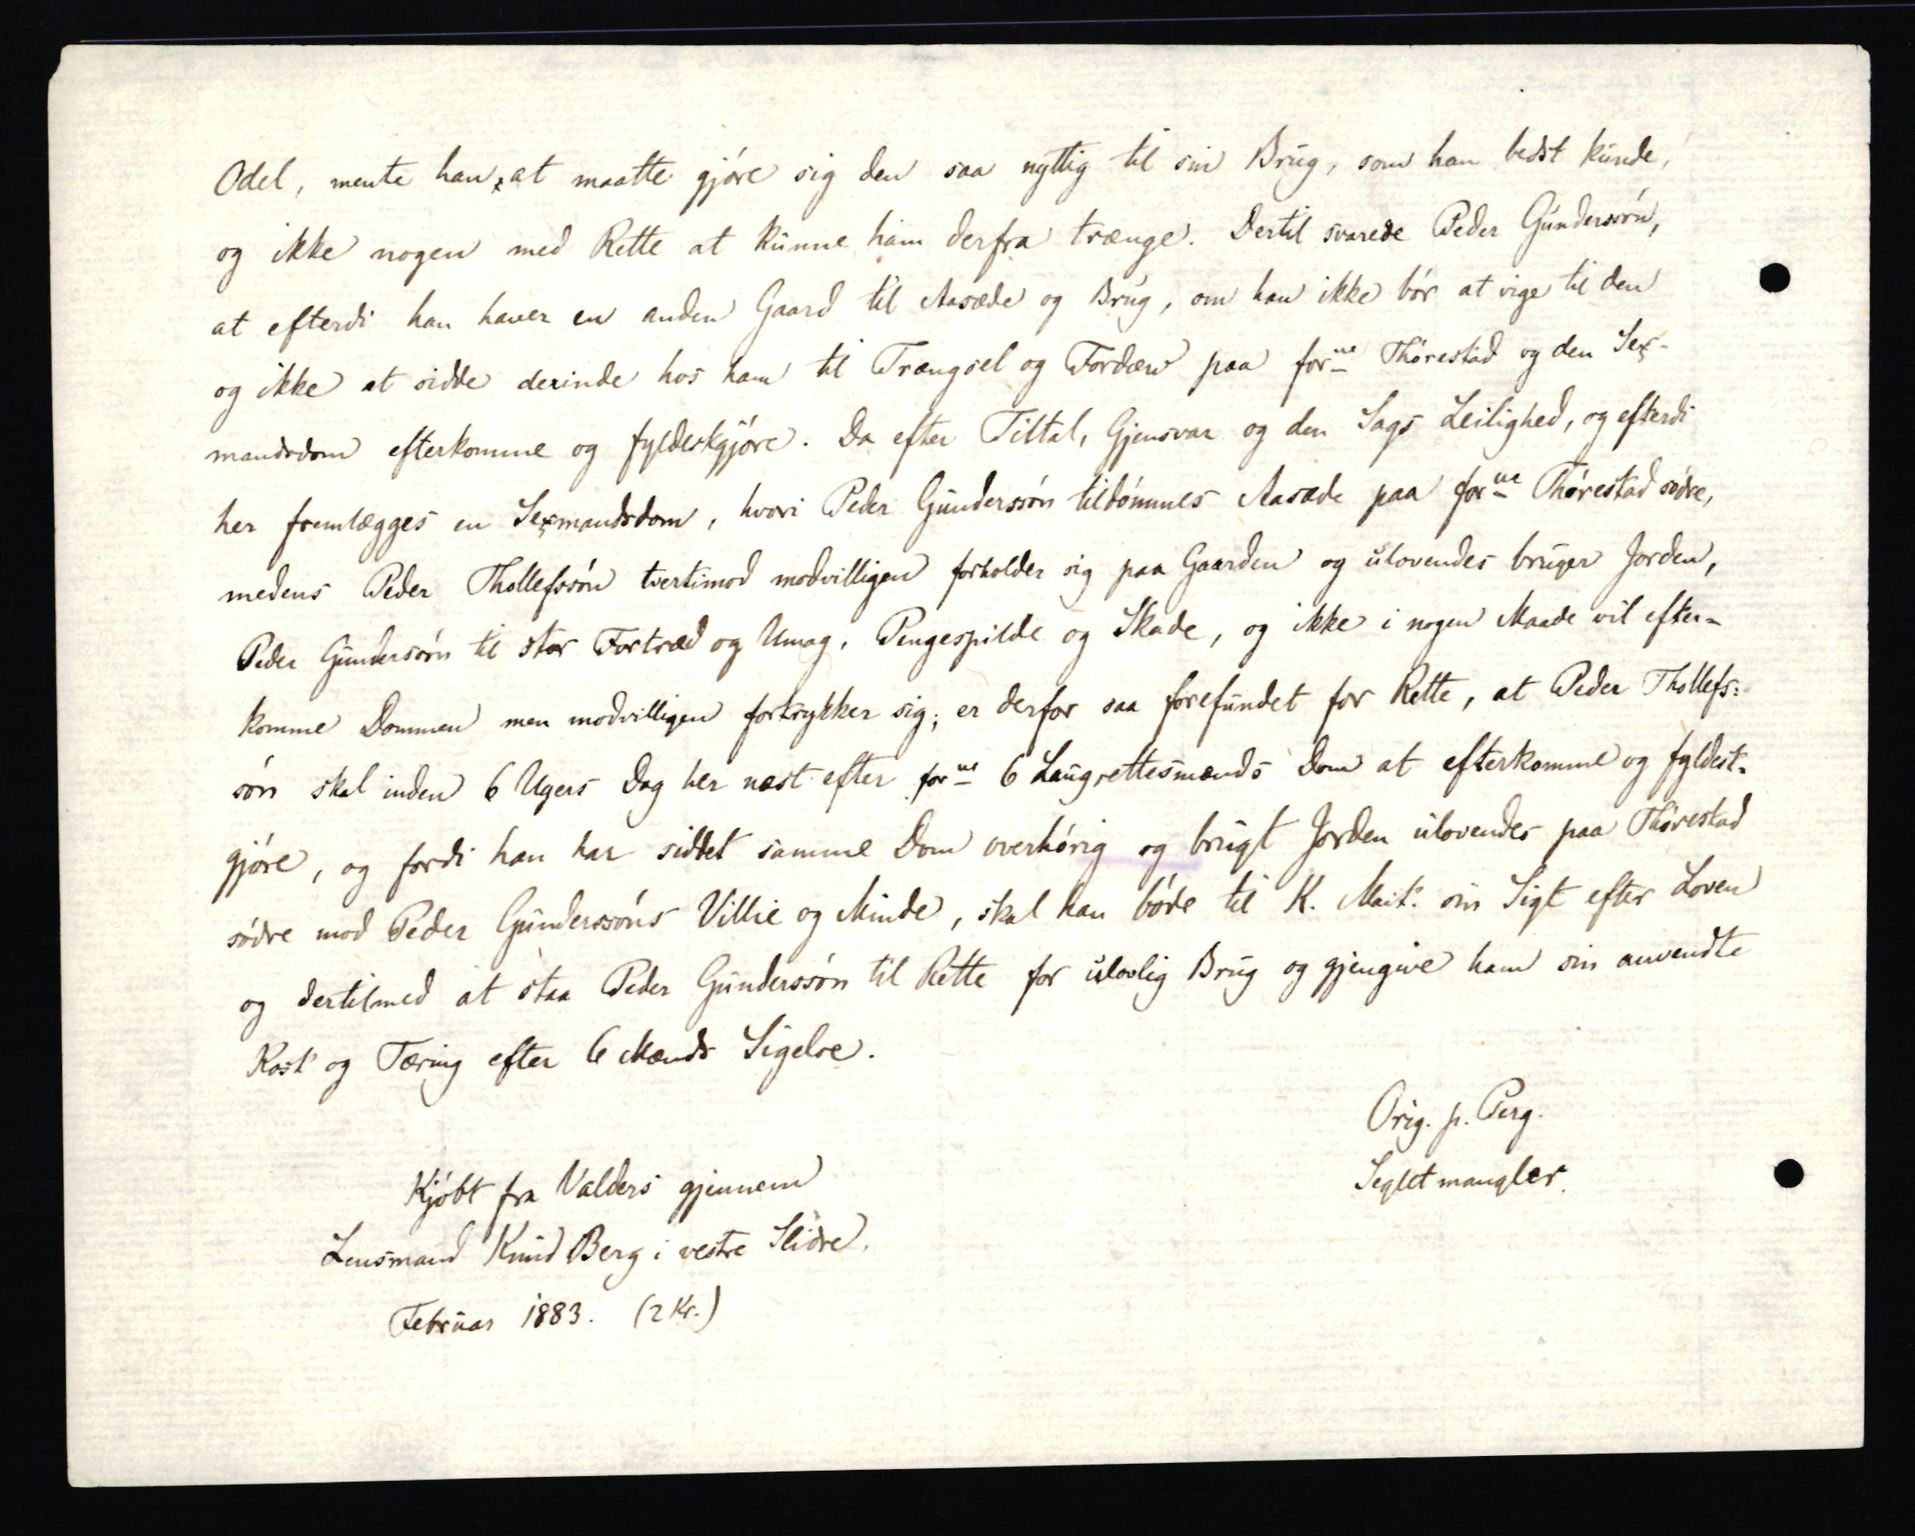 Odel, mente han, at maatte gjöre sig den saa nyttig til sin Brug, som han bedst kunde,
og ikke nogen med Rette at kunne ham derfra trænge. Dertil svarede Peder Gunderssön,
at efterdi han haver en anden Gaard til Aasæde og Brug, om han ikke bör at vige til den
og ikke at sidde derinde hos ham til Trængsel og Fordærv paa forne Thörestad og den Sex-
mandsdom efterkomme og fyldestgjöre. Da efter Tiltal, Gjensvar og den Sags Leilighed, og efterdi
her fremlægges en Sexmandsdom, hvori Peder Gunderssön tildömmes Aasæde paa forne Thörestad södre,
medens Peder Thollefssön tvertimod modvilligen forholder sig paa Gaarden og ulovendes bruger Jorden,
Peder Gunderssön til stor Fortræd og Umag, Pengespilde og Skade, og ikke i nogen Maade vil efter-
komme Dommen men modvilligen fortrykker sig; er derfor saa forefundet for Rette, at Peder Thollefs-
sön skal inden 6 Ugers Dag her næst efter forne 6 Laugrettesmænds Dom at efterkomme og fyldest-
gjöre, og fordi han har siddet samme Dom overhörig og brugt Jorden ulovendes paa Thörestad
södre mod Peder Gunderssöns Villie og Minde, skal han böde til K. Mait. sin Sigt efter Loven
og dertilmed at staa Peder Gunderssön til Rette for ulovlig Brug og gjengive ham sin anvendte
Kost og Tæring efter 6 Mænds Sigelse.
Orig. p. Perg.
Seglet mangler.
Kjöbt fra Valders gjennem
Lensmand Knud Berg i vestre Slidre.
Februar 1883. (2 Kr.)